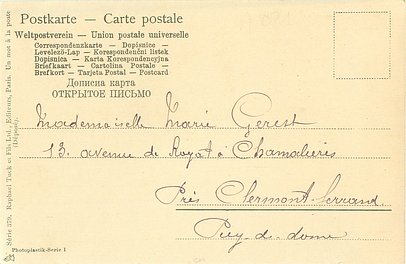 Postkarte — Carte postale
Weltpostverein — Union postale universelle
Correspondenzkarte — Dopisnice —
Levelező-Lap — Korespondenční listek
Dopisnica — Karta Korespondencyjna
Briefkaart — Cartolina Postale —
Brefkort — Tarjeta Postal — Postcard
Дописна карта
ОТКРЫТОЕ ПИСЬМО
Mademoiselle Marie Gerest
13. avenue de Royat à Chamalières
Près Clermont-Ferrand
Puy-de-dome
Série 379. Raphael Tuck et Fils Ltd., Editeurs, Paris. Un mot à la poste
(Déposé)
Photoplastik-Serie I